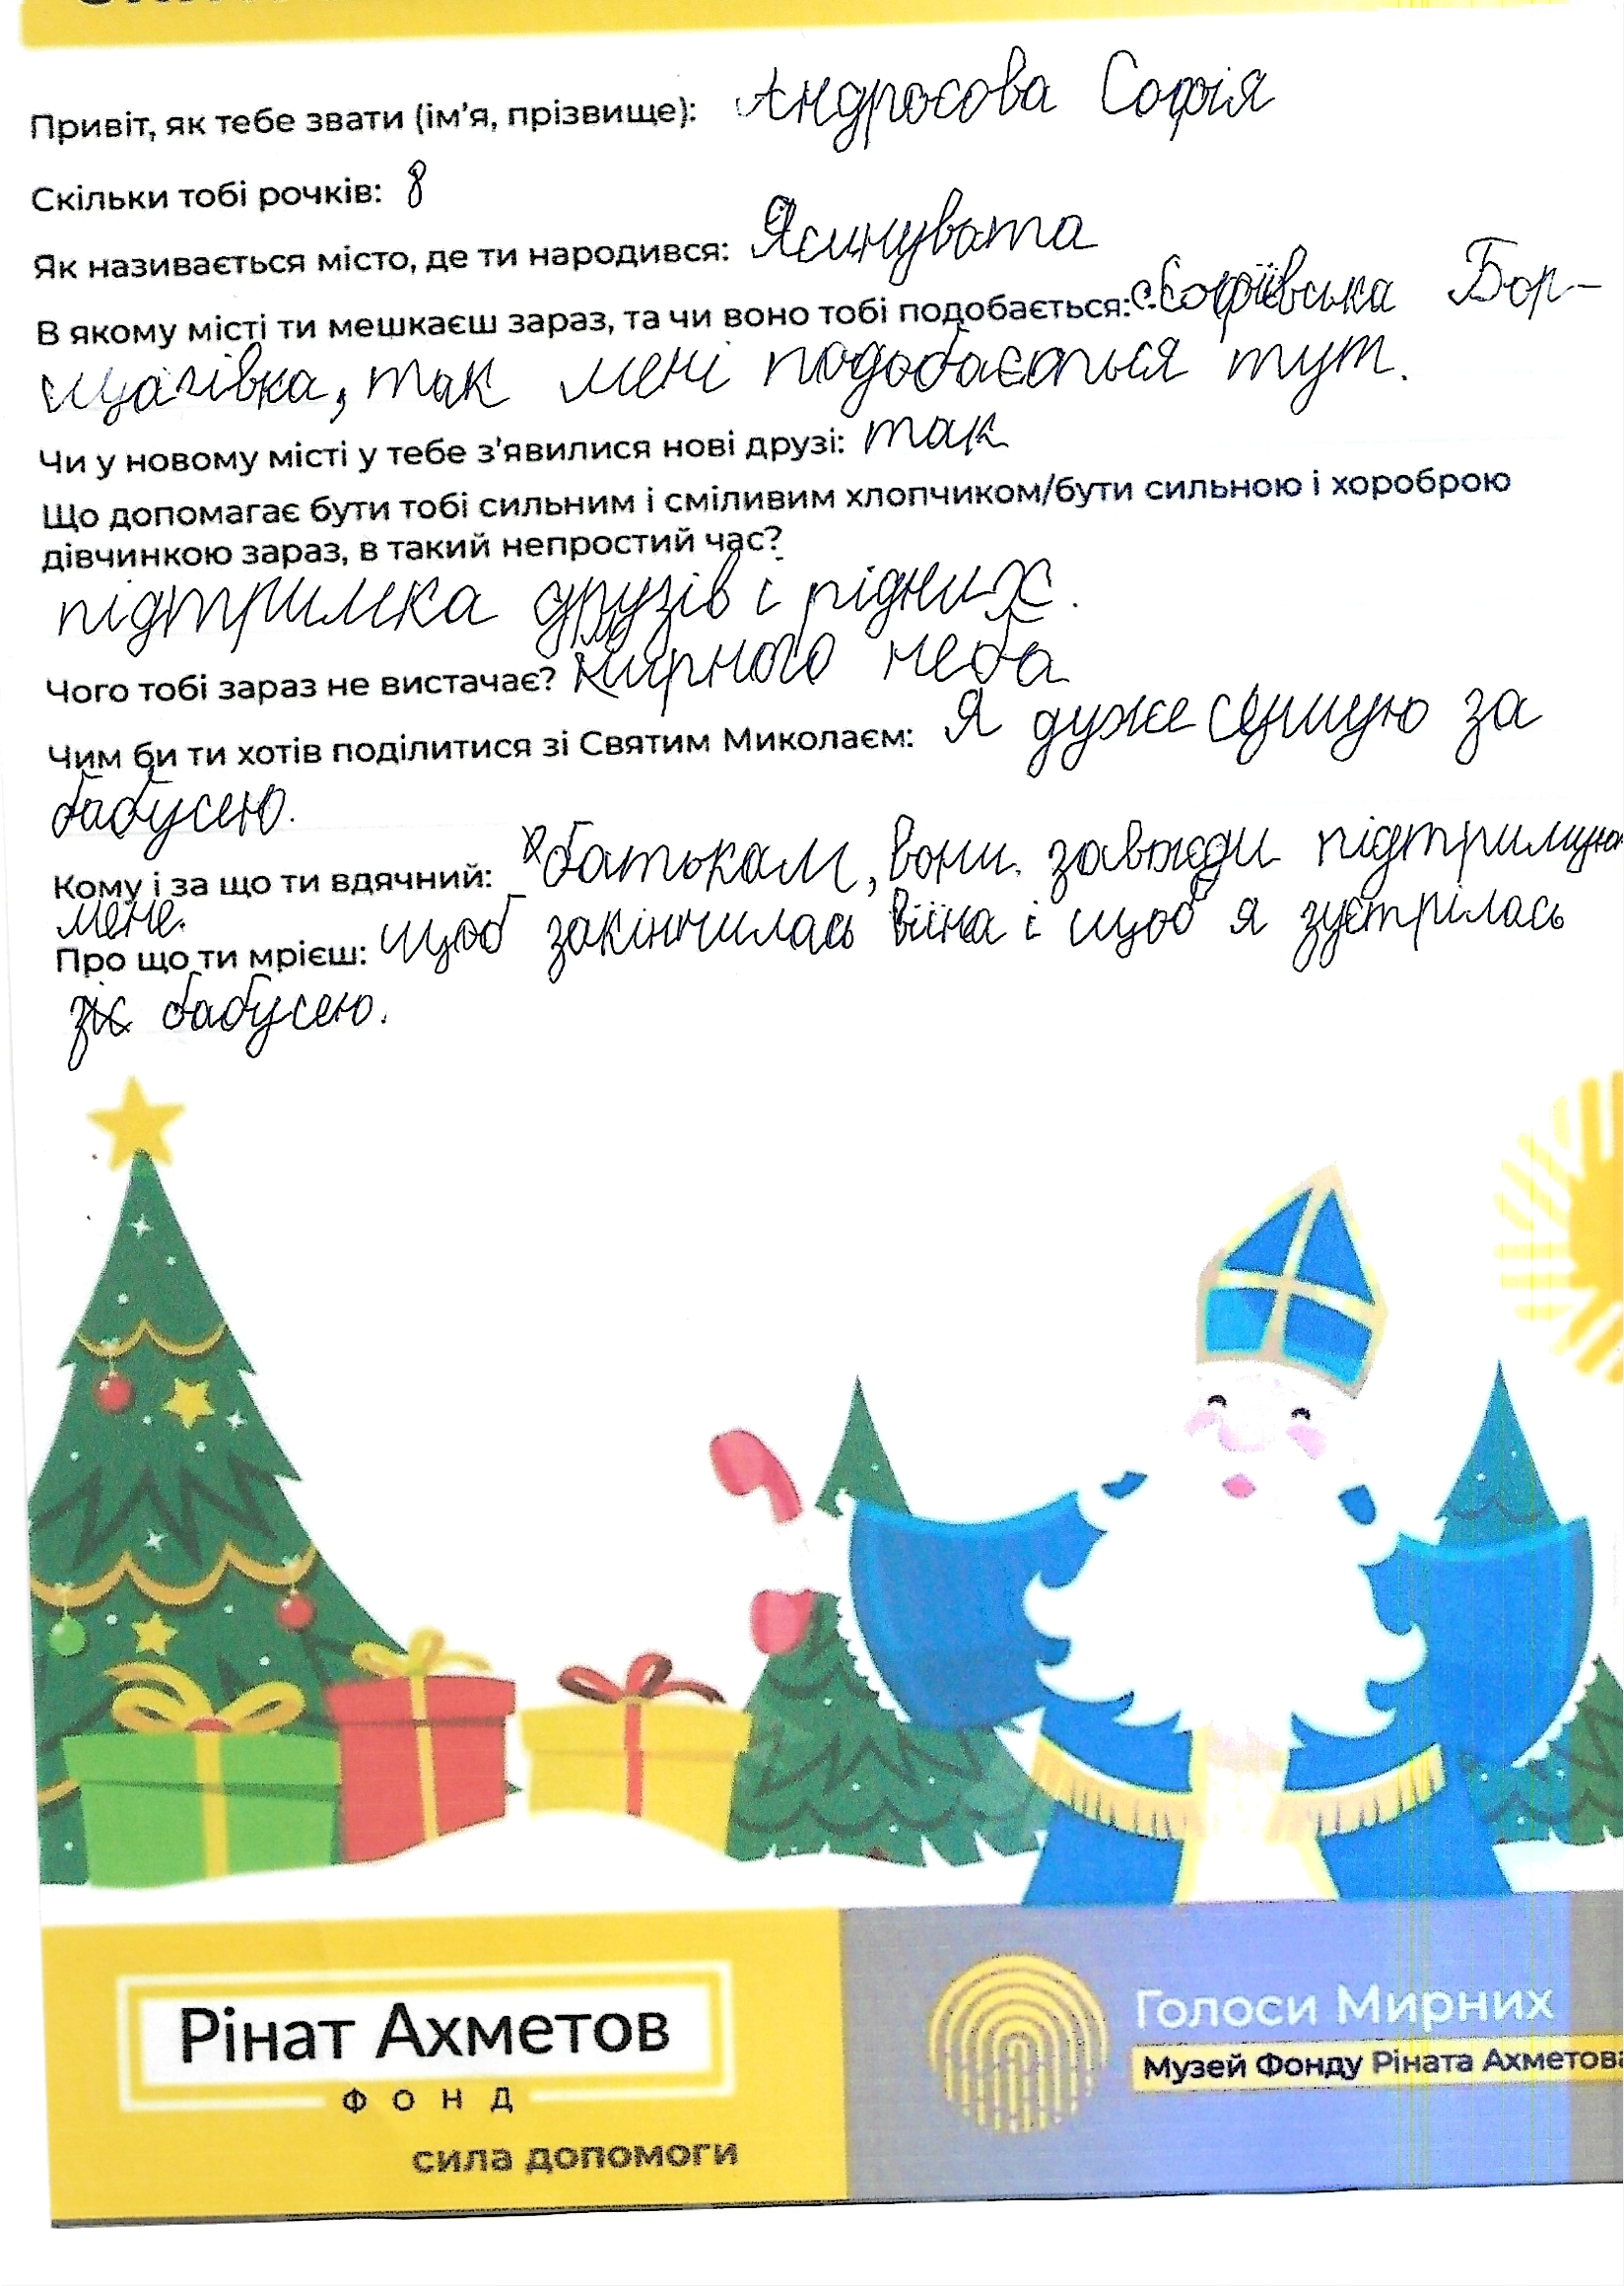 Привіт, як тебе звати (ім'я, прізвище): Андросова Софія
Скільки тобі рочків: 8
Як називається місто, де ти народився: Ясинувата
В якому місті ти мешкаєш зараз, та чи воно тобі подобається: с.Софіївська Бор-
щагівка, так мені подобається тут.
Чи у новому місті у тебе з'явилися нові друзі: так
Що допомагає бути тобі сильним і сміливим хлопчиком/бути сильною і хороброю
дівчинкою зараз, в такий непростий час?
підтримка друзів і рідних.
Чого тобі зараз не вистачає? мирного неба
Чим би ти хотів поділитися зі Святим Миколаєм: Я дуже сумую за
бабусею.
Кому і за що ти вдячний: батькам, вони завжди підтримую
мене.
Про що ти мрієш: щоб закінчилась війна і щоб я зустрілась
з бабусею.
Рінат Ахметов
ФОНД
сила допомоги
Голоси Мирних
Музей Фонду Ріната Ахметова